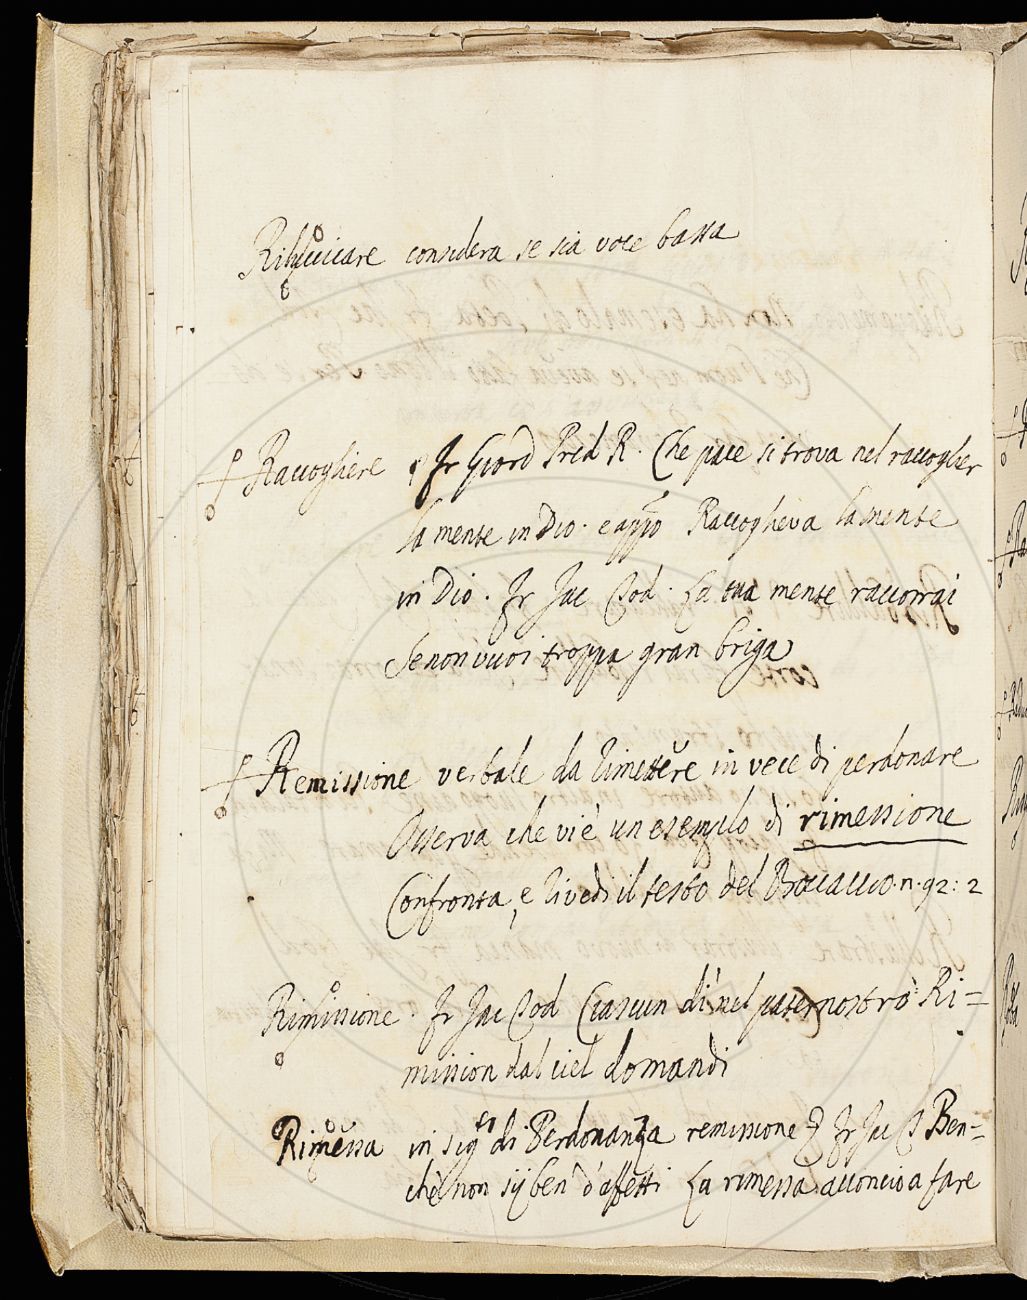 considera se sia voce bassa
Raccogliere Fr Giord Pred R. Che pace si trova nel raccoglier
la mente in Dio. e appo Raccogheva la mente
in Dio. Fr Jac Tod. La tua mente raccorrai
Se non vuoi troppa gran briga
Remissione verbale da Rimettere in vece di perdonare
Osserva che vi è un esemplo di rimessione
Confronta, e rivedi il testo del Boccaccio. n. 92: 2
Rimissione. Fr Jac Tod Ciascun dì nel paternostro Ri=
mission dal ciel domandi
Rimessa in sigto di Perdonanza remissione Fr Jac T Ben=
chè non sij ben d'affetti La rimessa acconcio a fare